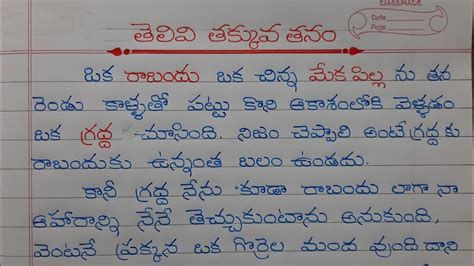 CLASSMATE
Date
Page
తెలివి తక్కువ తనం
ఒక రాబందు ఒక చిన్న మేక పిల్ల ను తన
రెండు కాళ్ళతో పట్టు కొని ఆకాశంలోకి వెళ్ళడం
ఒక గ్రద్ద చూసింది. నిజం చెప్పాలి అంటే గ్రద్దకు
రాబందుకు ఉన్నంత బలం ఉండదు.
కానీ గ్రద్ద నేను కూడా రాబందు లాగా నా
ఆహారాన్ని నేనే తెచ్చుకుంటాను అనుకుంది,
వెంటనే ప్రక్కన ఒక గొర్రెల మంద వుంది దాని